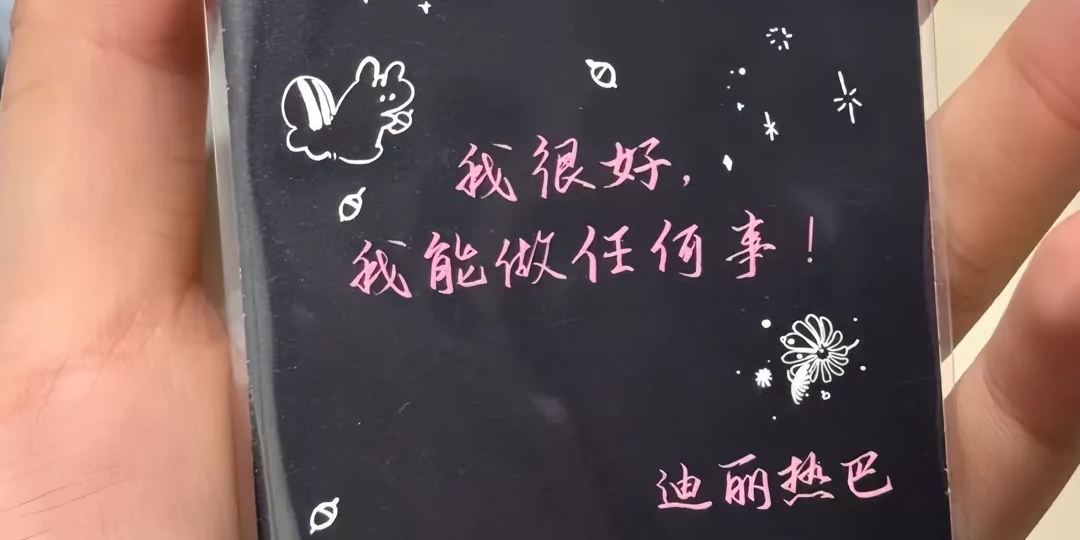 我很好，
我能做任何事！
迪丽热巴